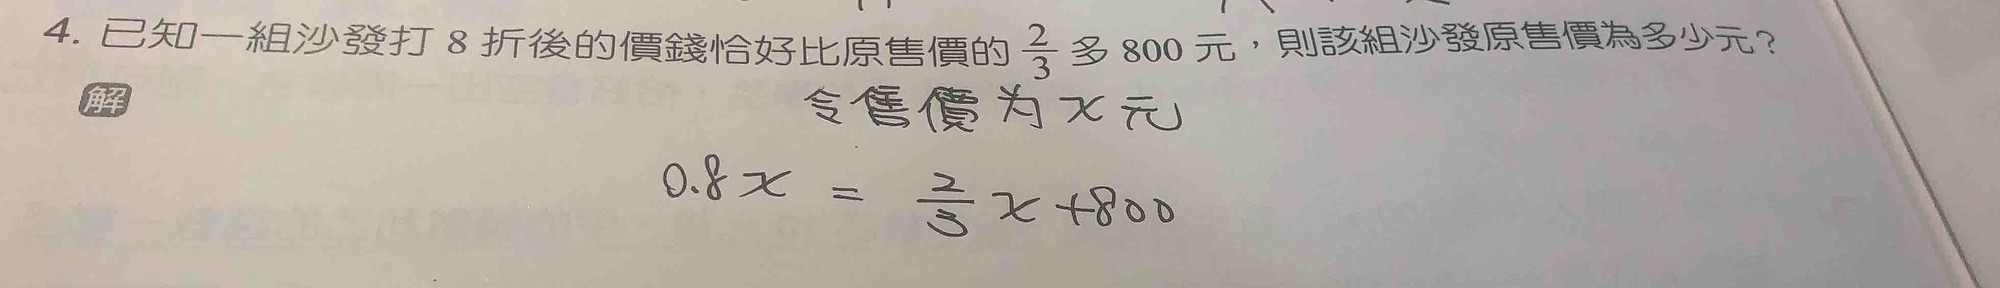 4. 已知一組沙發打 8 折後的價錢恰好比原售價的 2/3 多 800 元,則該組沙發原售價為多少元?
解
令售價为 x 元
0.8x = 2/3 x + 800